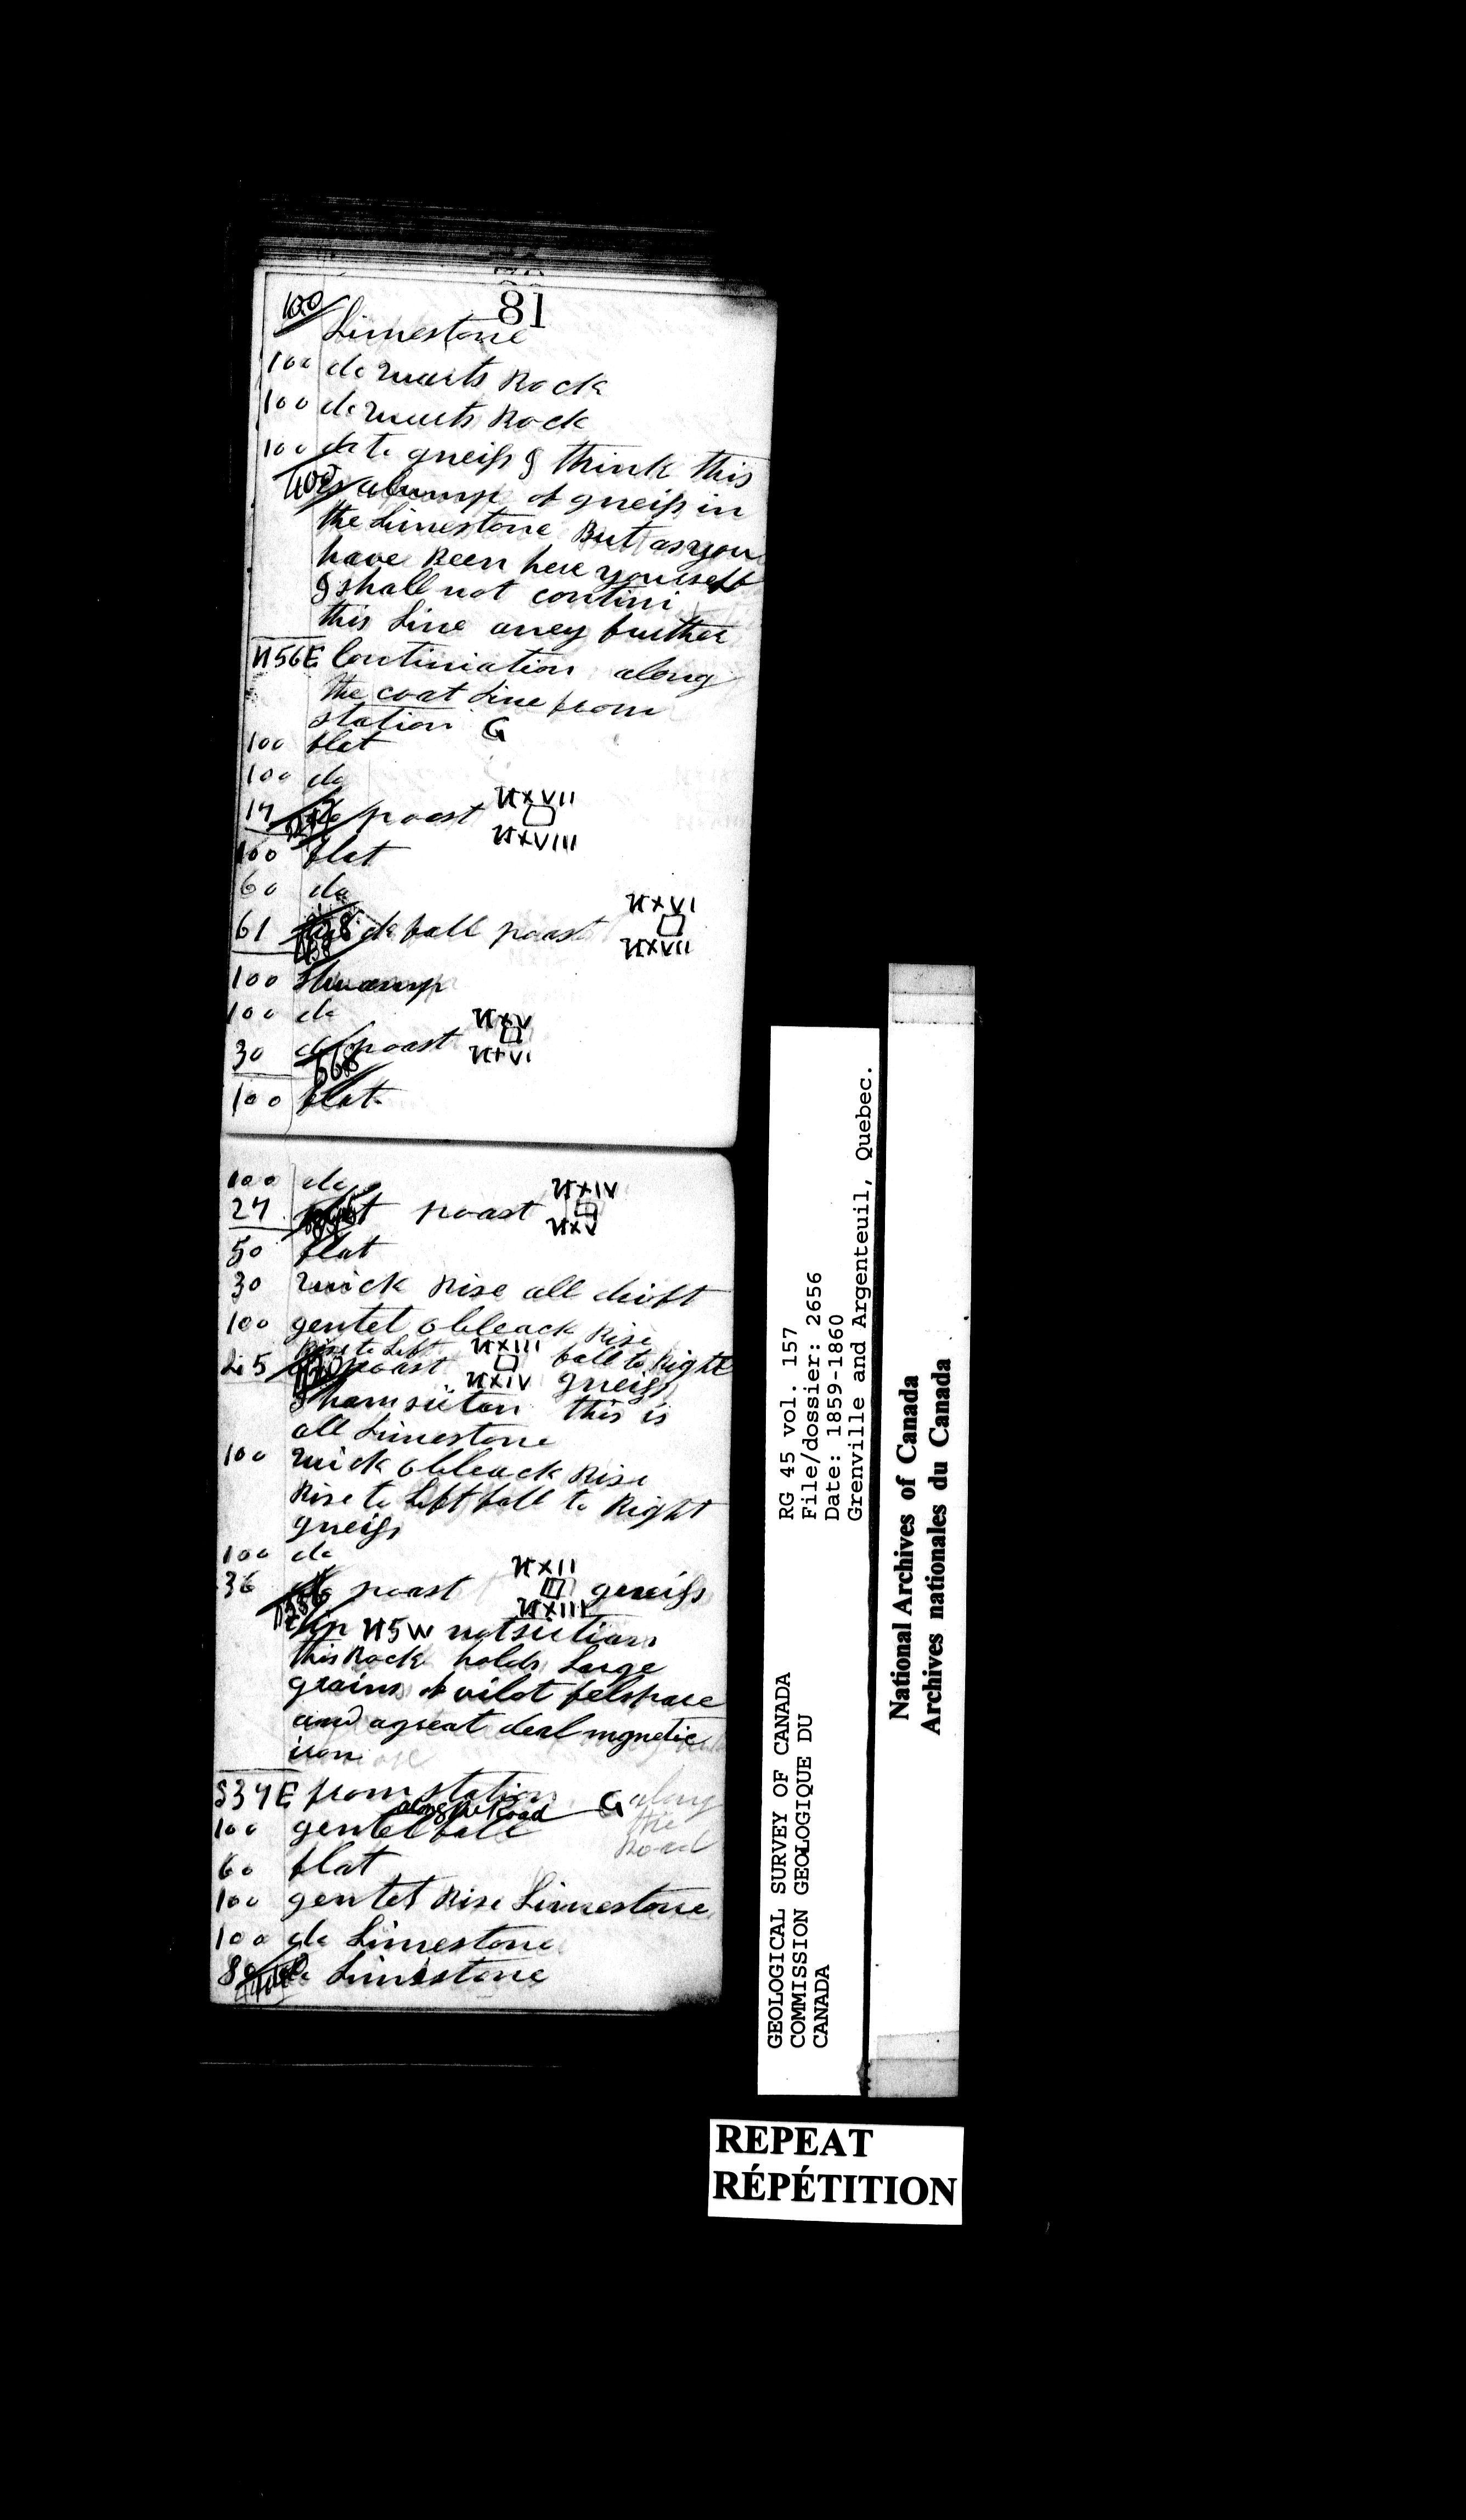 81
100 Limestone
100 do Quarts Rock
100 do Quarts Rock
100 do to gneiss I think this
400 is a lump of gneiss in
the Limestone But as you
have Been here yourself
I shall not contini
this Line aney further
N56E Continiation along
the coat Line from
station G
100 flat
100 do
17 do poast NXVII
NXVIII
100 flat
60 do
61 fall poast NXVI
NXVII
100 Swamp
100 do
30 do poast NXV
668 NXVI
100 flat
100 do
27 flat poast NXIV
NXV
50 flat
30 Quick Rise all drift
100 gentel obleack Rise
Rise to Left NXIII fall to Right
poast NXIV gneiss
this is
all Limestone
100 Quick obleack Rise
Rise to Left fall to Right
gneiss
100 do
36 do poast NXII gneiss
NXIII
dip N5W
this Rock holds Large
grains of vilot felspare
and a great deal mgnetic
iron
S34E from station G along
the
Road
along the Road
100 gentel fall
60 flat
100 gentel Rise Limestone
100 do Limestone
80 do Limestone
GEOLOGICAL SURVEY OF CANADA
COMMISSION GEOLOGIQUE DU
CANADA
RG 45 vol. 157
File/dossier: 2656
Date: 1859-1860
Grenville and Argenteuil, Quebec.
National Archives of Canada
Archives nationales du Canada
REPEAT
RÉPÉTITION